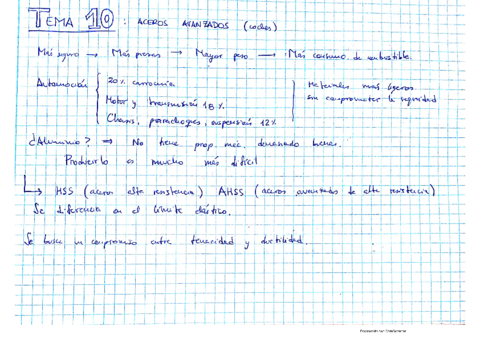 TEMA 10: ACEROS AVANZADOS (coches)
Más seguro → Más piezas → Mayor peso → Más consumo de combustible.
Automoción { 20% carrocería
Motor y transmisión 18% { Materiales más ligeros
sin comprometer la seguridad
Chasis, parachoques, suspensión 12%
¿Aluminio? → No tiene prop. mec. demasiado buenas.
Producirlo es mucho más difícil
↳ HSS (aceros alta resistencia) AHSS (aceros avanzados de alta resistencia)
Se diferencia en el límite elástico.
Se busca un compromiso entre tenacidad y ductilidad.